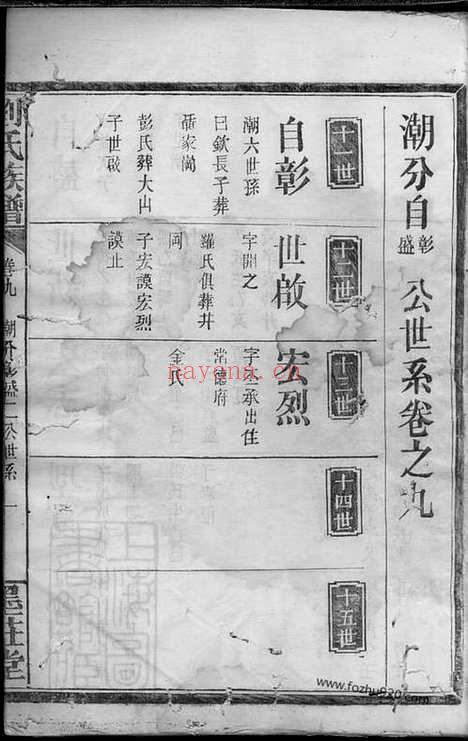 潮分自彰盛公世系卷之九
十一世
自彰
潮六世孫
曰欽長子葬
家崗
彭氏葬大山
子世啟
十二世
世啟
字開之
羅氏俱葬井
岡
子宏謨宏烈
謨止
十三世
宏烈
字丕承出住
常德府
金氏
十四世
十五世
氏族譜
卷九
潮分彰盛二公世系
一
堂
nayona.cn
www.fozhu920.com